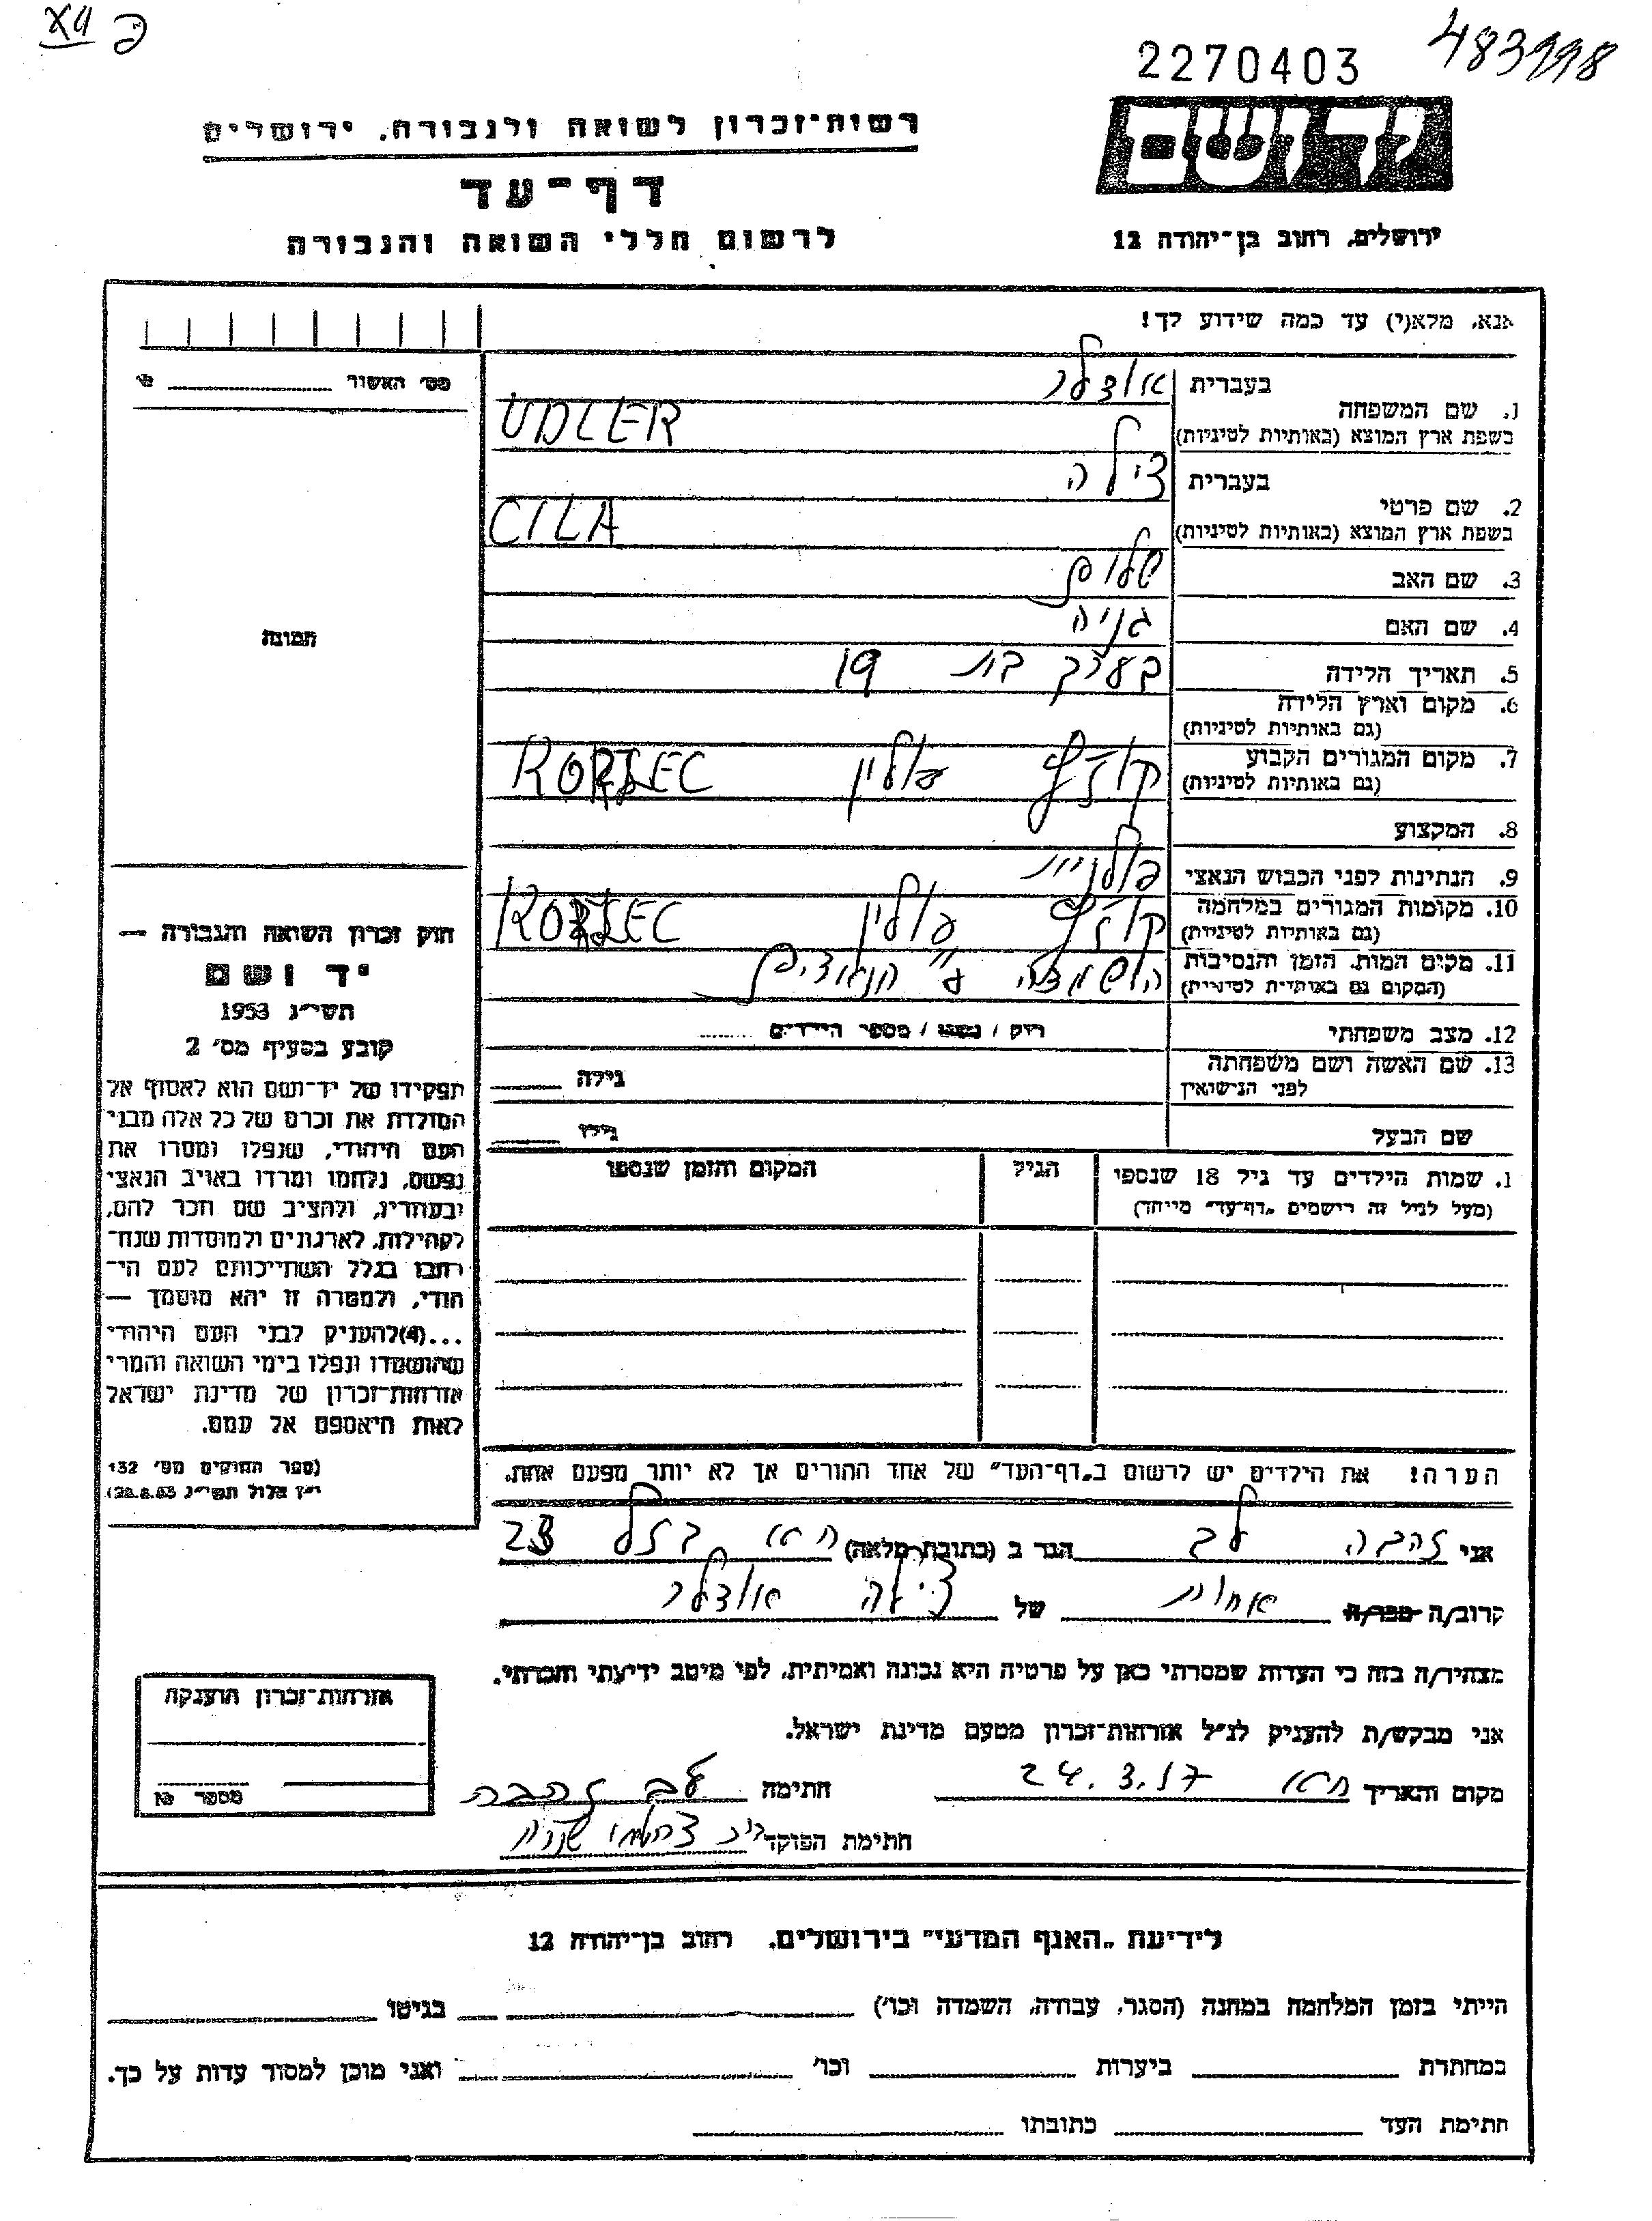 2270403
483998
רשות־זכרון לשואה ולגבורה, ירושלים
דף־עד
לרשום חללי השואה והגבורה
יד ושם
ירושלים, רחוב בן־יהודה 12
אנא, מלא(י) עד כמה שידוע לך!
מס' האשור
1. שם המשפחה
בעברית אודלר
בשפת ארץ המוצא (באותיות לטיניות) UDLER
2. שם פרטי
בעברית צילה
בשפת ארץ המוצא (באותיות לטיניות) CILA
3. שם האב שלום
4. שם האם גניה
5. תאריך הלידה בערך בת 19
6. מקום וארץ הלידה
(גם באותיות לטיניות)
7. מקום המגורים הקבוע קורץ פולין KORZEC
(גם באותיות לטיניות)
8. המקצוע
9. הנתינות לפני הכבוש הנאצי פולנית
10. מקומות המגורים במלחמה קורץ פולין KORZEC
(גם באותיות לטיניות)
11. מקום המות, הזמן והנסיבות הושמדה ע"י הנאצים
(המקום גם באותיות לטיניות)
12. מצב משפחתי רוק / נשוי / מספר הילדים
13. שם האשה ושם משפחתה גילה
לפני הנישואין
שם הבעל גילו
1. שמות הילדים עד גיל 18 שנספו הגיל המקום והזמן שנספו
(מעל לגיל זה רישמים „דף־עד" מיוחד)
הערה! את הילדים יש לרשום ב„דף־העד" של אחד ההורים אך לא יותר מפעם אחת.
תמונה
חוק זכרון השואה והגבורה —
יד ושם
תשי"ג 1953
קובע בסעיף מס' 2
תפקידו של יד־ושם הוא לאסוף אל
המולדת את זכרם של כל אלה מבני
העם היהודי, שנפלו ומסרו את
נפשם, נלחמו ומרדו באויב הנאצי
ובעוזריו, ולהציב שם וזכר להם,
לקהילות, לארגונים ולמוסדות שנח־
רבו בגלל השתייכותם לעם הי־
הודי, ולמטרה זו יהא מוסמך —
...(4)להעניק לבני העם היהודי
שהושמדו ונפלו בימי השואה והמרי
אזרחות־זכרון של מדינת ישראל
לאות היאספם אל עמם.
(ספר החוקים מס' 132
י"ז אלול תשי"ג 28.8.53)
אני זהבה לב הגר ב (כתובת מלאה) 23
קרוב/ה מכר/ה אחות של צילה אודלר
מצהיר/ה בזה כי העדות שמסרתי כאן על פרטיה היא נכונה ואמיתית, לפי מיטב ידיעתי והכרתי.
אני מבקש/ת להעניק לנ"ל אזרחות־זכרון מטעם מדינת ישראל.
מקום והאריך 24.3.57 חתימה לב זהבה
חתימת הפוקד
אזרחות־זכרון הוענקה
מספר №
לידיעת „האגף המדעי" בירושלים, רחוב בן־יהודה 12
הייתי בזמן המלחמה במחנה (הסגר, עבודה, השמדה וכו') בגיטו
במחתרת ביערות וכו' ואני מוכן למסור עדות על כך.
חתימת העד כתובתו